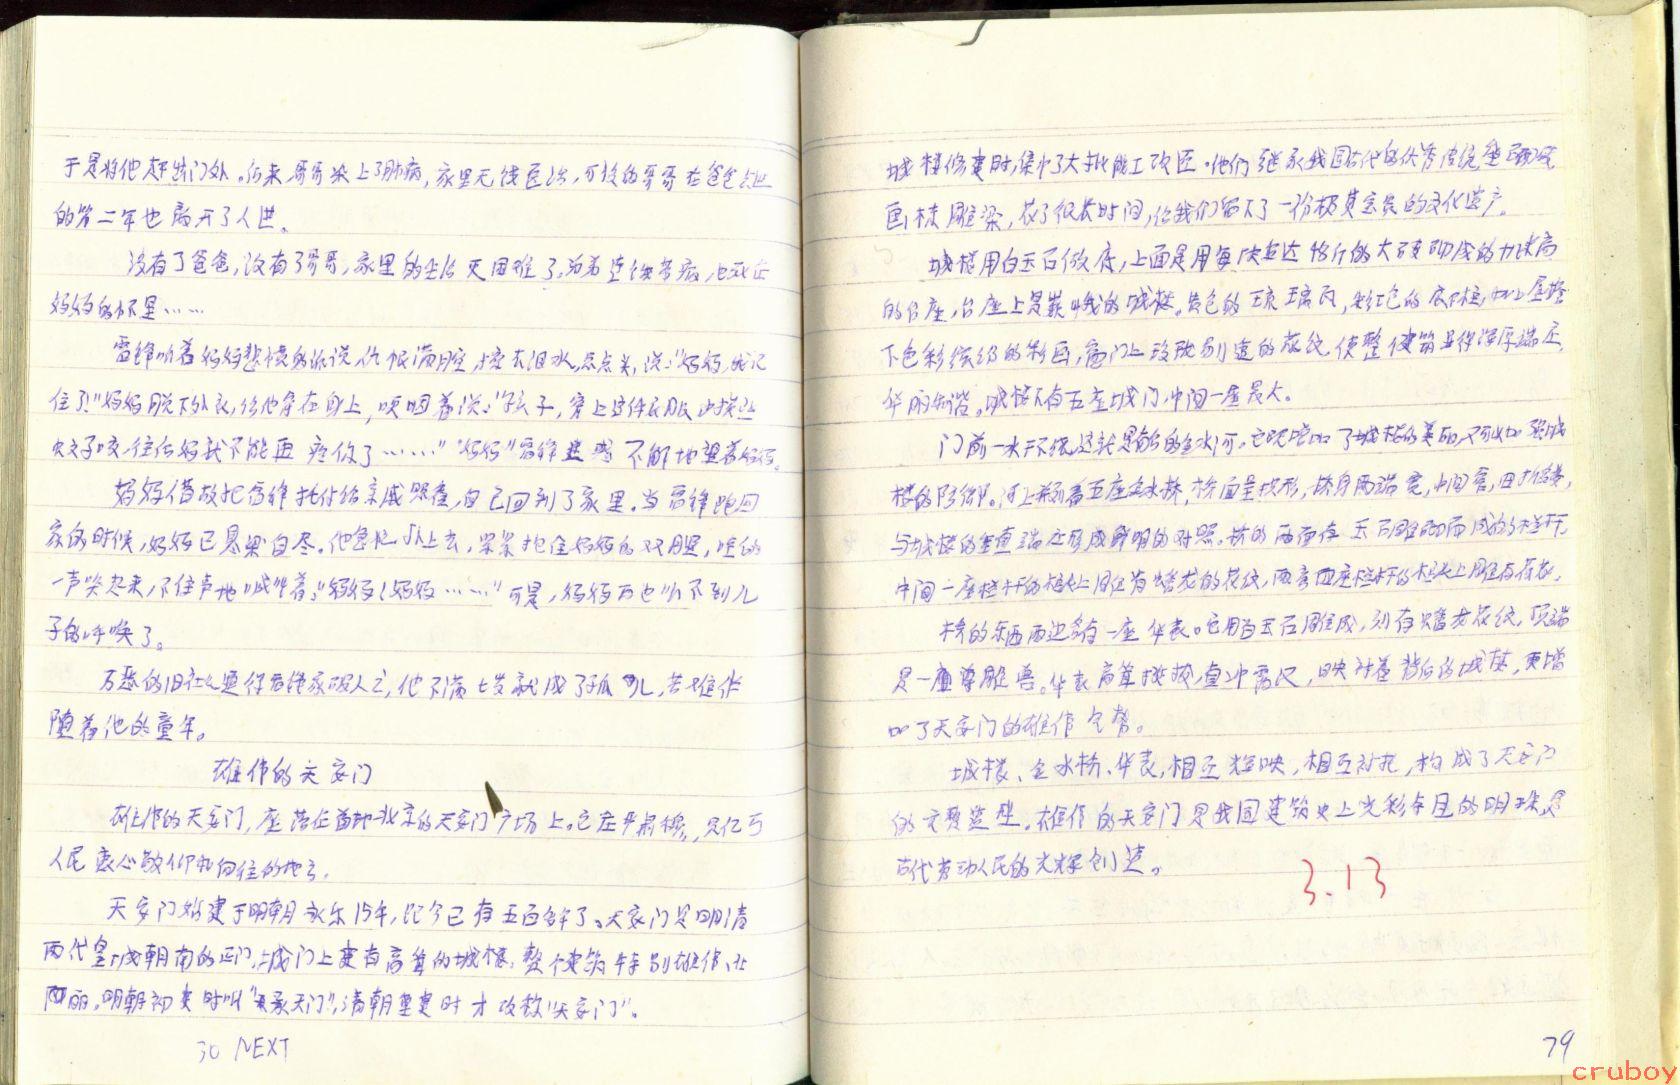 于是将他赶出门外。后来哥哥染上了肺病，家里无钱医治，可怜的哥哥在爸爸去世
的第二年也离开了人世。
没有了爸爸，没有了哥哥，家里的生活更困难了。弟弟连饿带病，也死在
妈妈的怀里……
雷锋听着妈妈悲愤的诉说，仇恨满腔，擦去泪水，点点头，说："妈妈，我记
住了！"妈妈脱下外衣，给他穿在身上，哽咽着说："孩子，穿上这件衣服
咬，往后妈就不能再疼你了……""妈妈"雷锋不解地望着妈妈。
妈妈借故把雷锋托付给亲戚照看，自己回到了家里。当雷锋跑回
家的时候，妈妈已悬梁自尽。他急忙扑上去，紧紧抱住妈妈的双腿，哇的
一声哭起来，不住声地喊叫着："妈妈！妈妈……"可是，妈妈再也听不到儿
子的呼唤了。
万恶的旧社会逼得雷锋家破人亡，他不满七岁就成了孤儿，苦难伴
随着他的童年。
雄伟的天安门
雄伟的天安门，座落在首都北京的天安门广场上。它庄严肃穆，是亿万
人民衷心敬仰和向往的地方。
天安门始建于明朝永乐15年，距今已有五百多年了。天安门是明清
两代皇城朝南的正门，城门上建有高耸的城楼，整个建筑特别雄伟、壮
丽。明朝初建时叫"承天门"，清朝重建时才改称"天安门"。
30 NEXT
城楼修建时，集中了大批能工巧匠。他们继承我国古代的优秀传统
画栋雕梁，花了很长时间，给我们留下了一份极其宝贵的文化遗产。
城楼用白玉石做底，上面是用每块重达48斤的大砖砌成的高
的台座，台座上是巍峨的城楼。黄色的琉璃瓦，
下色彩缤纷的彩画，门上玲珑别透的花纹，使整个建筑显得浑厚端庄，
华丽和谐。城楼下有五座城门，中间一座最大。
门前一水环绕，这就是有名的金水河。它既增加了城楼的美丽，又可以加强城
楼的防御。河上并列着五座金水桥，桥面呈拱形，桥身两端宽，中间窄，
与城楼的垂直端庄形成鲜明的对照。桥的两面有玉石雕砌而成的栏杆
中间一座栏杆的柱头上雕有蟠龙的花纹，两旁四座栏杆的柱头上雕有荷花。
桥的东西两边各有一座华表。它用白玉石雕成，刻有蟠龙花纹，顶端
是一尊雕兽。华表高耸挺拔，直冲霄汉，映衬着背后的城楼，更增
加了天安门的雄伟气势。
城楼、金水桥、华表，相互辉映，相互衬托，构成了天安门
的完整造型。雄伟的天安门是我国建筑史上光彩夺目的明珠，是
古代劳动人民的光辉创造。
3.13
79
cruboy